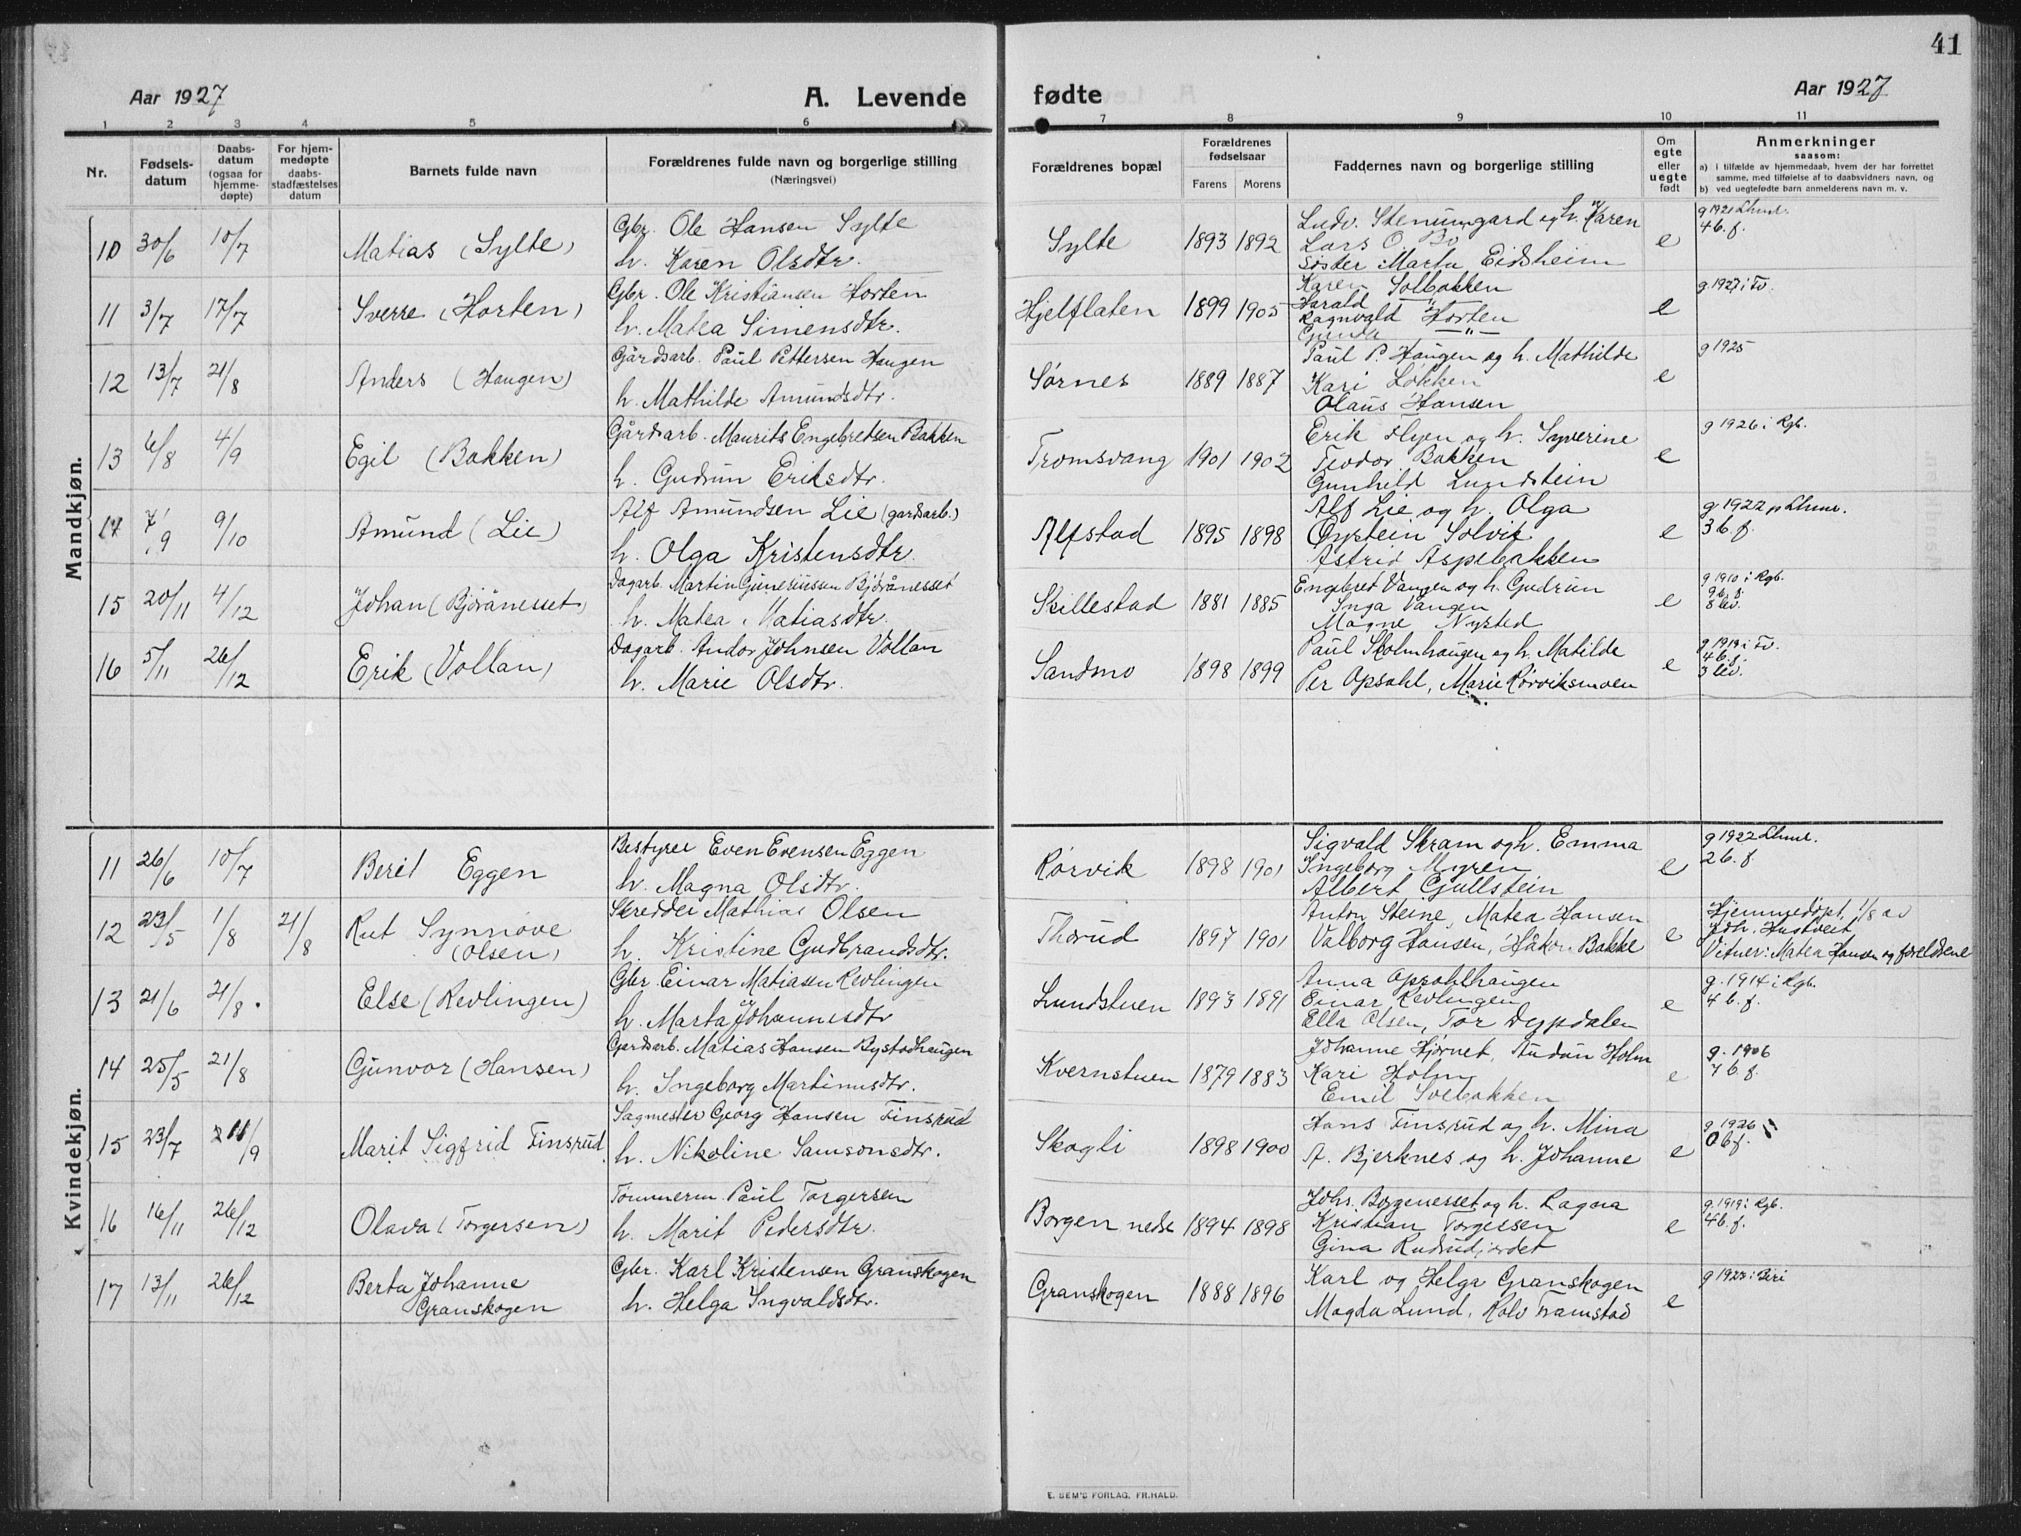 41
Aar 1927
A. Levende fødte
Aar 1927
1 2 3 4 5 6 7 8 9 10 11
Nr.
Fødsels-
datum
Daabs-
datum
(ogsaa for
hjemme-
døpte)
For hjem-
medøpte
daabs-
stadfæstelses
datum
Barnets fulde navn
Forældrenes fulde navn og borgerlige stilling
(Næringsvei)
Forældrenes bopæl
Forældrenes
fødselsaar
Farens Morens
Faddernes navn og borgerlige stilling
Om
egte
eller
uegte
født
Anmerkninger
saasom:
a) i tilfælde av hjemmedaab, hvem der har forrettet
samme, med tilføielse af to daabsvidners navn, og
b) ved uegtefødte barn anmelderens navn m. v.
Mandkjøn.
10 30/6 10/7 Matias (Sylte)
Gbr. Ole Hansen Sylte
h. Karen Olsdtr.
Sylte 1893 1892
Ludv. Stenumgard og h. Karen
Lars O. Bø
Søster Marta Eidsheim
e
g 1921 Lhmr.
4 b. f.
11 3/7 17/7 Sverre (Horten)
Gbr. Ole Kristiansen Horten
h. Matea Simensdtr.
Hjelflaten 1899 1905
Karen Solbakken
Harald —"—
Ragnvald Horten
Gunda —"—
e
g 1927 i Fv.
12 13/7 21/8 Anders (Haugen)
Gårdsarb. Paul Pettersen Haugen
h. Mathilde Amundsdtr.
Sørnes 1889 1887
Paul P. Haugen og h. Mathilde
Kari Løkken
Olaus Hansen
e
g 1925
13 6/8 4/9 Egil (Bakken)
Gårdsarb. Maurits Engebretsen Bakken
h. Gudrun Eriksdtr.
Tromsvang 1901 1902
Erik Flyen og h. Syverine
Teodor Bakken
Gunhild Lundstein
e
g 1926 i Rgb.
14 7/9 9/10 Amund (Lie)
Alf Amundsen Lie (gardsarb.)
h. Olga Kristensdtr.
Alfstad 1895 1898
Alf Lie og h. Olga
Øystein Solvik
Astrid Aspebakken
e
g 1922 p Lhmr.
3 b. f.
15 20/11 4/12 Johan (Bjørånesset)
Dagarb. Martin Guneriussen Bjørånesset
h. Matea Matiasdtr.
Skillestad 1881 1885
Engebret Vangen og h. Gudrun
Inga Vangen
Magne Nysted
e
g 1910 i Rgb.
9 b. f.
8 lev.
16 5/11 26/12 Erik (Vollan)
Dagarb. Andor Johnsen Vollan
h. Marie Olsdtr.
Sandmo 1898 1899
Paul Skolmhaugen og h. Matilde
Per Opsahl, Marie Rørviksmoen
e
g 1919 i Fv.
4 b. f.
3 lev.
Kvindekjøn.
11 26/6 10/7 Berit Eggen
Bestyrer Even Evensen Eggen
h. Magna Olsdtr.
Rørvik 1898 1901
Sigvald Skram og h. Emma
Ingeborg Myren
Albert Gullstein
e
g 1922 Lhmr.
2 b. f.
12 23/5 1/8 21/8 Rut Synnøve
(Olsen)
Skredder Mathias Olsen
h. Kristine Gudbrandsdtr.
Thorud 1897 1901
Anton Steine, Matea Hansen
Valborg Hansen, Håkon Bakke
e
Hjemmedøpt 1/8 av
Joh. Hustveit
Vitner: Matea Hansen og foreldrene
13 21/6 21/8 Else (Revlingen)
Gbr Einar Matiasen Revlingen
h. Marta Johannesdtr
Lundstuen 1893 1891
Anna Opsahlhaugen
Einar Revlingen
Ella Olsen, Tor Dypdalen
e
g. 1914 i Rgb.
4 b. f.
14 25/5 21/8 Gunvor (Hansen)
Gardsarb. Matias Hansen Bystadhaugen
h. Ingeborg Martinusdtr.
Kvernstuen 1879 1883
Johanne Hjørnet, Audun Holm
Kari Holm
Emil Svebakken
e
g. 1906
7 b. f.
15 23/7 11/9 Marit Sigfrid Finsrud
Sagmester Georg Hansen Finsrud
h. Nikoline Samsonsdtr.
Skogli 1898 1900
Hans Finsrud og h. Mina
A. Bjerknes og h. Johanne
e
g 1926
0 b f.
16 16/11 26/12 Olava (Torgersen)
Tømmerm. Paul Torgersen
h. Marit Pedersdtr.
Borgen nedr 1894 1898
Johs. Borgenesset og h. Ragna
Kristian Torgersen
Gina Rudrudjordet
e
g. 1919 i Rgb.
4 b. f.
17 13/11 26/12 Berta Johanne
Granskogen
Gbr. Karl Kristensen Granskogen
h. Helga Ingvaldsdtr.
Granskogen 1888 1896
Karl og Helga Granskogen
Magda Lund, Rolv Framstad
e
g 1923 i Biri
E. SEM'S FORLAG, FR.HALD.